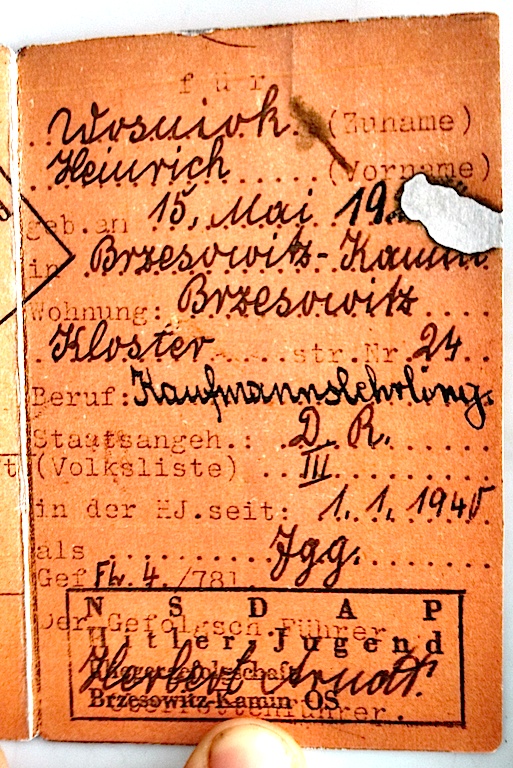 für
Wosniok (Zuname)
Heinrich (Vorname)
geb.an 15. Mai 19
in Brzesowitz-Kamin
Wohnung: Brzesowitz
Kloster str.Nr 24
Beruf: Kaufmannslehrling.
Staatsangeh.: D. R.
(Volksliste) III
in der HJ.seit: 1. 1. 1940
als Jgg.
Gef Fl. 4./781
N S D A P
Der Gefolgsch.Führer
Hitler Jugend
Fliegergefolgschaft
Herbert Arndt.
Brzesowitz-Kamin OS.
Oberrottenführer.